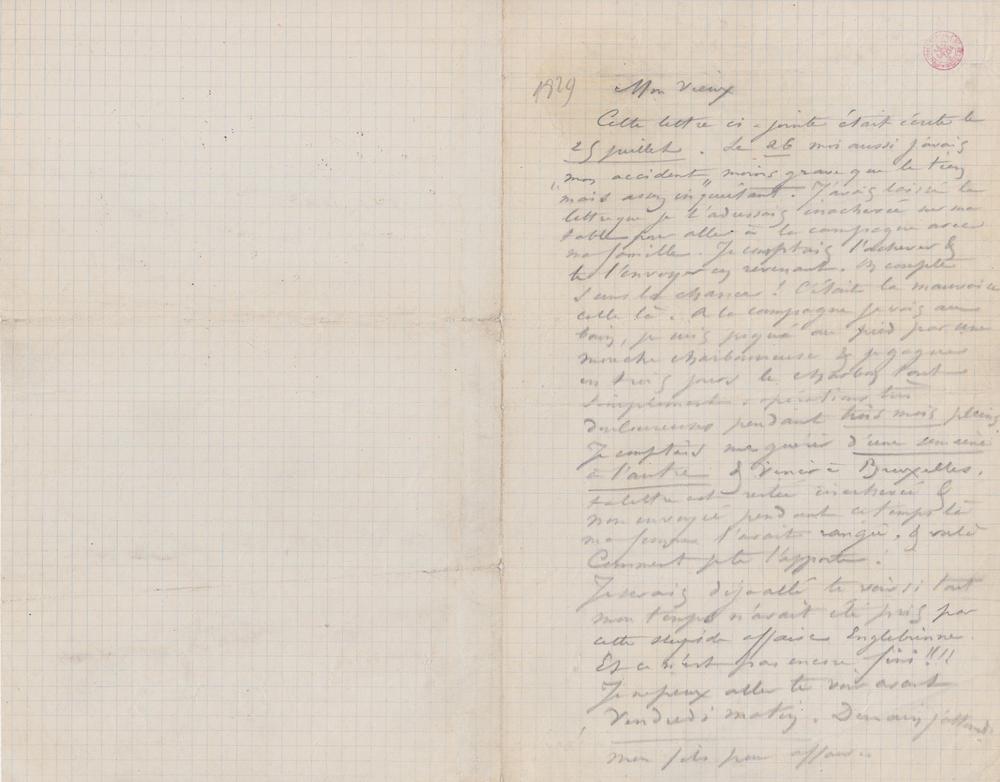 1929 Mon Vieux
Cette lettre ci-jointe était écrite le
25 juillet. Le 26 moi aussi j'avais
"mon accident" moins grave que le tien
mais assez inquiétant. J'avais laissé la
lettre que je t'adressais inachevée sur ma
table pour aller à la campagne avec
ma famille. Je comptais l'achever &
te l'envoyer en revenant. Je comptais
sans la chance! C'était la mauvaise
celle là. A la campagne je vais au
bain, je suis piqué au pied par une
mouche charbonneuse & je gagne
en trois jours le charbon tout
simplement. opérations très
douloureuses pendant trois mois pleins
Je comptais me guérir d'une semaine
à l'autre & venir à Bruxelles.
ta lettre est restée inachevée &
non envoyée pendant ce temps là
ma femme l'avait rangée. & voilà
Comment je te l'apporte.
Je serais déjà allé te voir si tout
mon temps n'avait été pris par
cette stupide affaire Englebienne.
Et ce n'est pas encore fini!!!!
Je ne peux aller te voir avant
Vendredi matin. Demain j'attends
mon fils pour affaires.